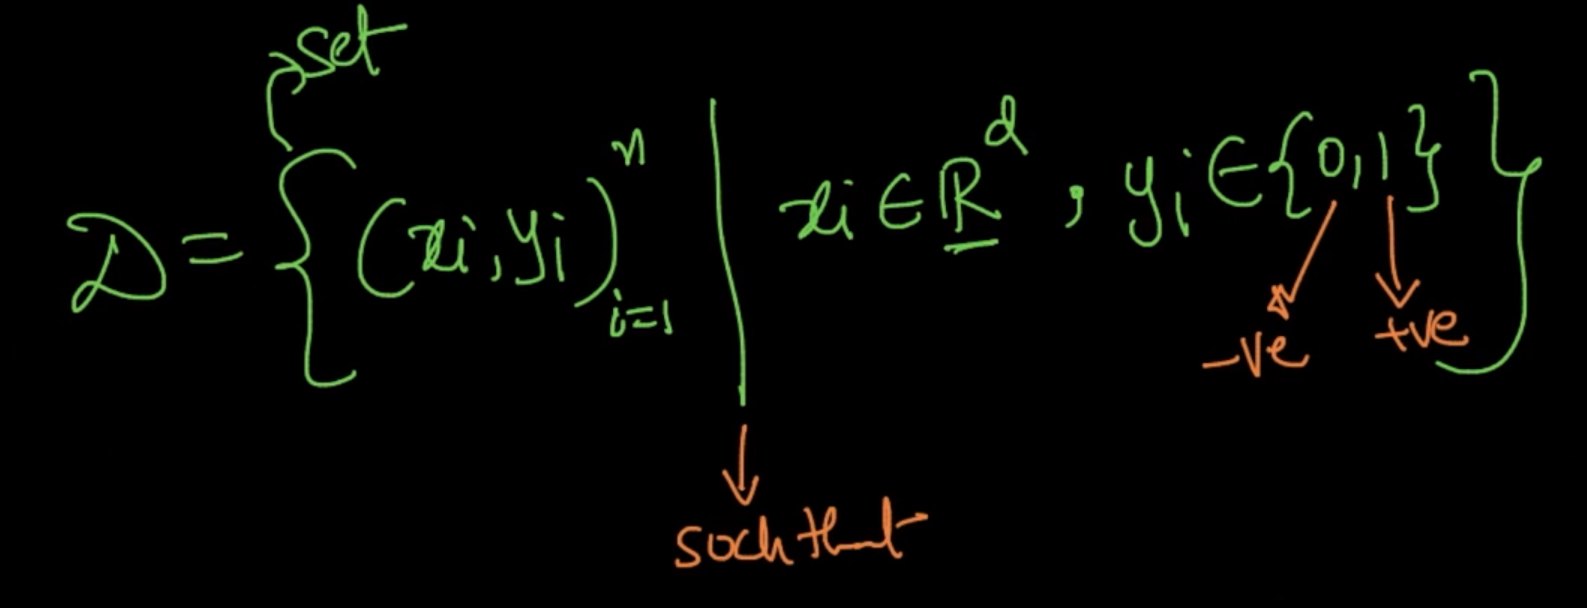 set
D = { (xi, yi)ⁿᵢ₌₁ | xi ∈ ℝᵈ, yi ∈ {0,1} }
-ve +ve
such that